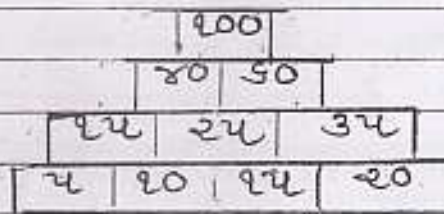 ૧૦૦
૪૦ ૬૦
૧૫ ૨૫ ૩૫
૫ ૧૦ ૧૫ ૨૦